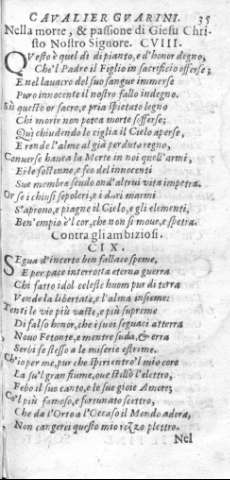 CAVALIER GVARINI. 35
Nella morte, & passione di Giesu Chri-
sto Nostro Signore. CVIII.
QVesto è quel dì di pianto, e d'honor degno,
Che'l Padre il Figlio in sacrificio offerse;
E nel lauacro del suo sangue immerse
Puro innocente il nostro fallo indegno.
Sù questo or sacro, e pria spietato legno
Chi morir non potea morte sofferse;
Quì chiudendo le ciglia il Cielo aperse,
E rende l'alme al già perduto regno,
Conuerse hauea la Morte in noi quell'armi,
Er lo sostenne, e feo del innocenti
Sue membra scudo ond'altrui vita impetra.
Or se i chiusi sepolcri, e i duri marmi
S'aprono, e piagne il Cielo, e gli elementi,
Ben'empio è'l cor, che non si moue, e spetra.
Contra gli ambiziosi.
CIX.
SEgua d'incerto ben fallace speme,
E per pace interrotta eterna guerra
Chi fatto idol celeste huom pur di terra
Vende la libertate, e l'alma insieme:
Tenti le vie più vaste, e più supreme
Di falso honor, che i suoi seguaci atterra
Nouo Fetonte, e mentre suda, & erra
Serbi se stesso a le miserie estreme.
Ch'io per me, pur che spiri entro'l mio core
La su'l gran fiume, oue stillò l'elettro,
Febo il suo canto, e le sue gioie Amore;
Col più famoso, e fortunato scettro,
Che da l'Orto a l'Occaso il Mondo adora,
Non cangerei questo mio rozzo plettro.
Nel